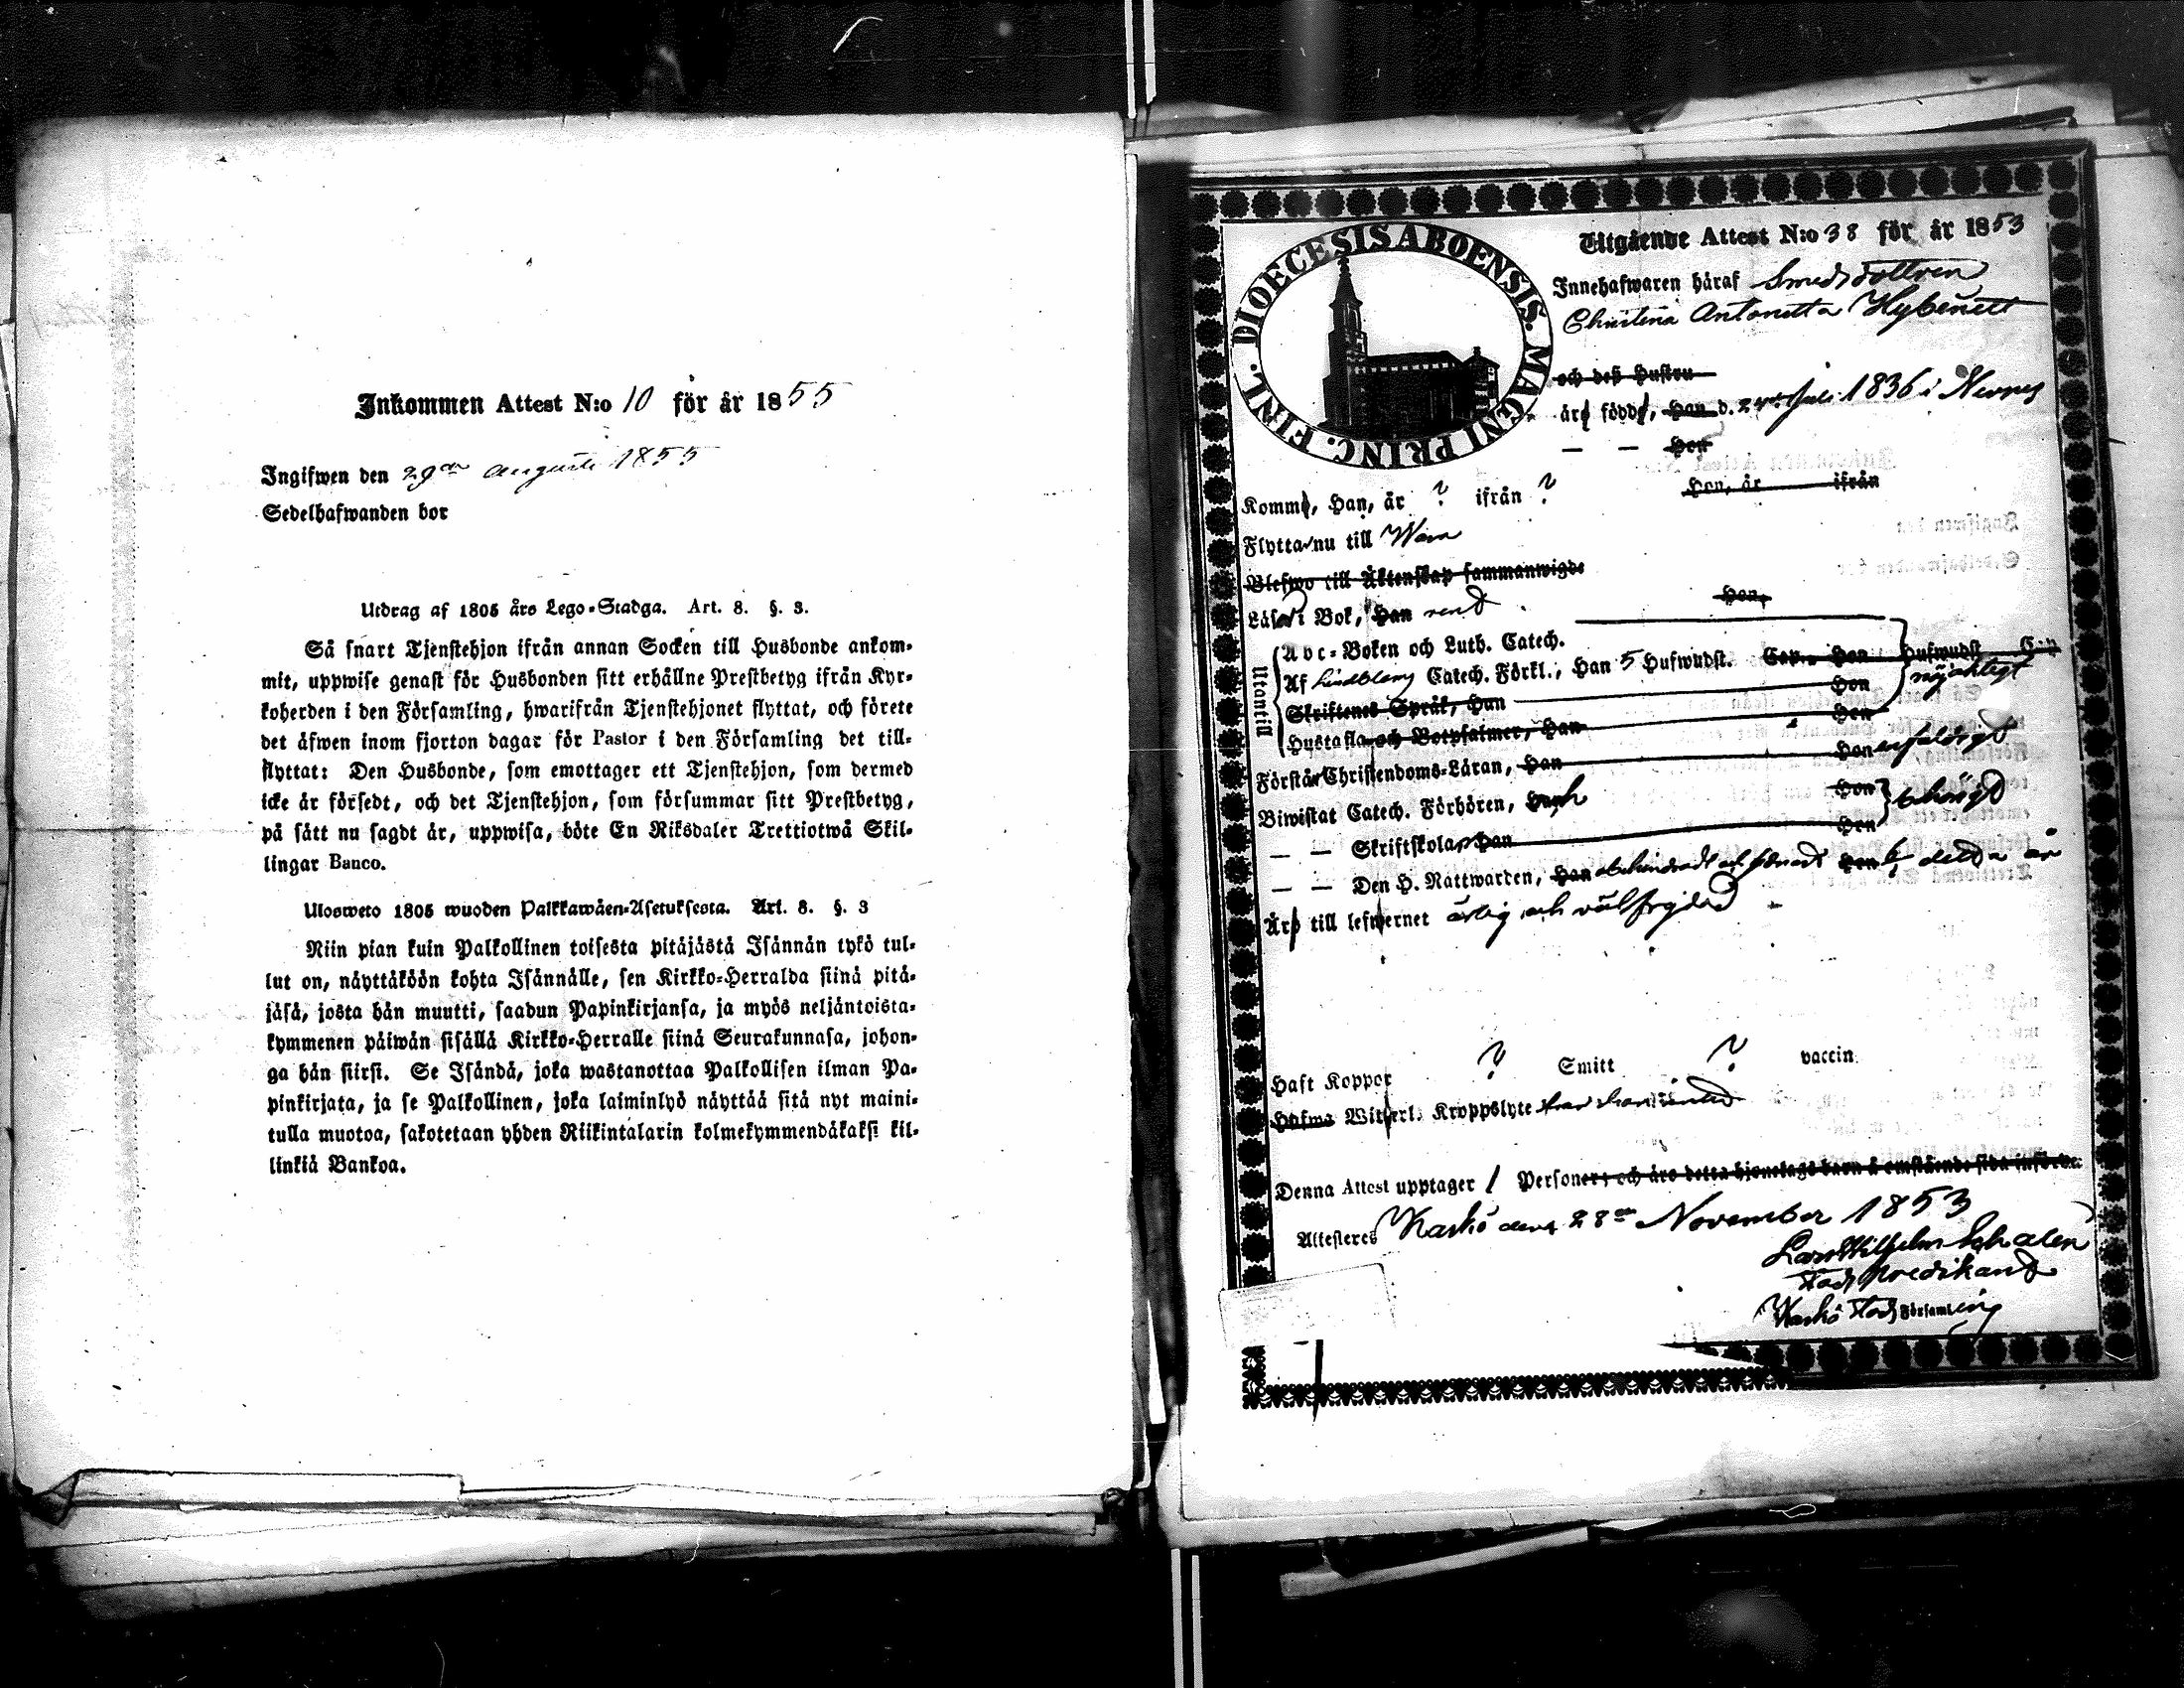 Inkommen Attest N:o 10 för år 1855
Ingifwen den 29de Augusti 1855
Sedelhafwanden bor
Utdrag af 1805 års Lego-Stadga. Art. 8. §. 3.
Så snart Tjenstehjon ifrån annan Socken till Husbonde ankom-
mit, uppwise genast för Husbonden sitt erhållne Prestbetyg ifrån Kyr-
koherden i den Församling, hwarifrån Tjenstehjonet flyttat, och förete
det äfwen inom fjorton dagar för Pastor i den Församling det till-
flyttat: Den Husbonde, som emottager ett Tjenstehjon, som dermed
icke är försedt, och det Tjenstehjon, som försummar sitt Prestbetyg,
på sätt nu sagdt är, uppwisa, böte En Riksdaler Trettiotwå Skil-
lingar Banco.
Ulosweto 1805 wuoden Palkkawäen-Asetuksesta. Art. 8. §. 3
Niin pian kuin Palkollinen toisesta pitäjästä Isännän tykö tul-
lut on, näyttäköön kohta Isännälle, sen Kirkko-Herralda siinä pitä-
jäsä, josta hän muutti, saadun Papinkirjansa, ja myös neljäntoista-
kymmenen päiwän sisällä Kirkko-Herralle siinä Seurakunnasa, johon-
ga hän siirsi. Se Isändä, joka wastanottaa Palkollisen ilman Pa-
pinkirjata, ja se Palkollinen, joka laiminlyö näyttää sitä nyt maini-
tulla muotoa, sakotetaan yhden Riikintalarin kolmekymmendäkaksi kil-
linkiä Bankoa.
DIOECESIS ABOENSIS. MAGNI PRINC. FINL.
Utgående Attest N:o 38 för år 1853
Innehafwaren häraf Smedsdottren
Christina Antonetta Hybenett
och deß Hustru
äro födde, Han d. Juli 1836 i Nerpes
— — Hon
Komme, Han, år ? ifrån ? Hon, år ifrån
Flytta nu till Wasa
Blefwo till Äktenskap sammanwigde
Läsa i Bok, Han rend Hon,
Utantill
Abc-Boken och Luth. Catech.
Af Lindblems Catech. Förkl., Han 5 Hufwudst. Cap., Hon Hufwudst Cap
Skriftenes Språk, Han Hon nöjaktigt
Hustafla och Botpsalmer, Han Hon
Förstår Christendoms-Läran, Han Hon enfaldigt
Biwistat Catech. Förhören, Han Hon behörigt
— — Skriftskolan Han Hon
— — Den H. Nattwarden, Han obehindrad och Hon detta år
Äro till lefwernet ärlig och välfrejdad
Haft Koppor ? Smitt ? vaccin.
Hafwa Witterl. Kroppslyte
Denna Attest upptager 1 Personer; och äro detta hjonelags barn å omstående sida införde.
Attesteres Kaskö den 28de November 1853
Lars Wilhelm Schalén
Stads Predikand
Kaskö Stads Församling